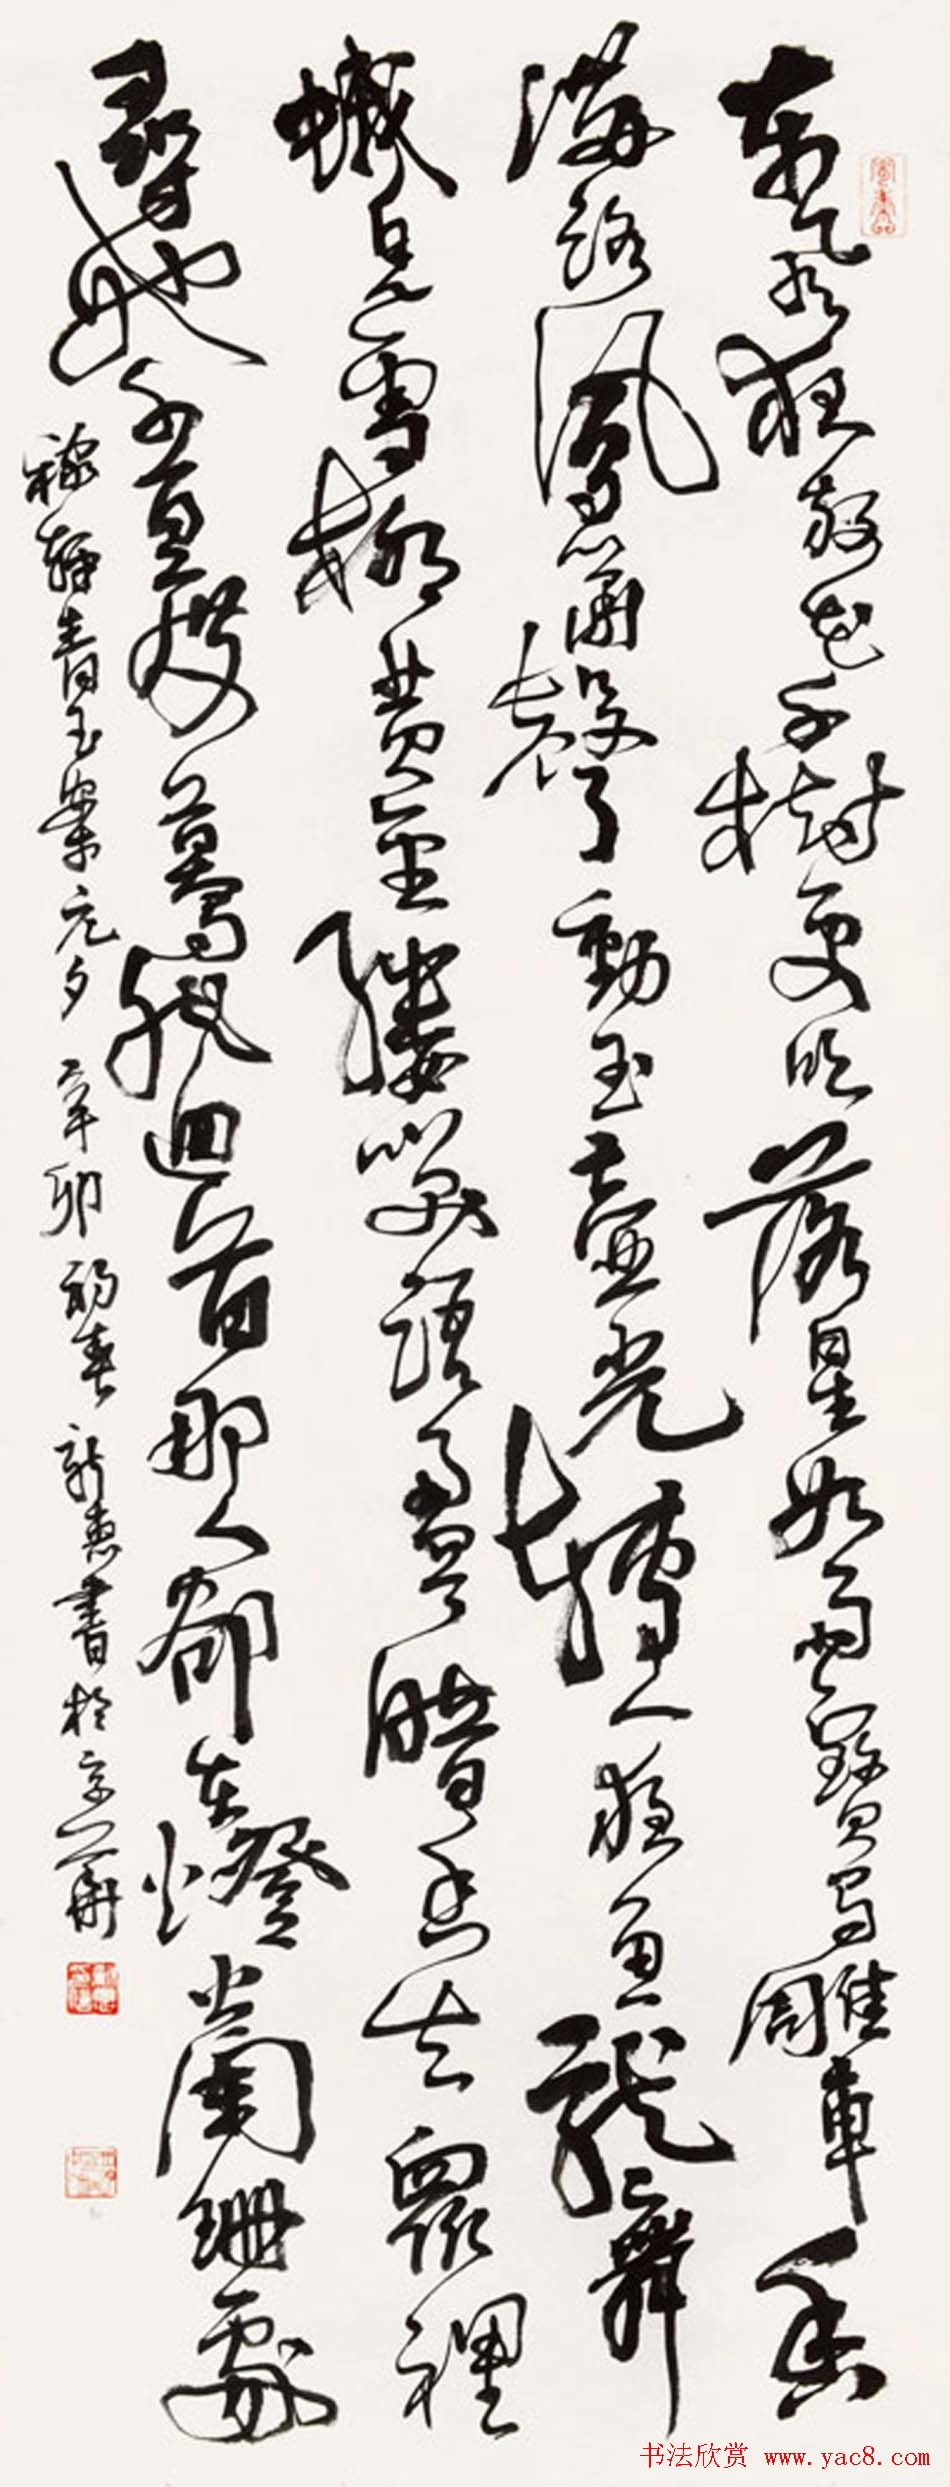 東風夜放花千樹更吹落星如雨寶馬雕車香
滿路鳳簫聲動玉壺光轉一夜魚龍舞
蛾兒雪柳黃金縷笑語盈盈暗香去眾裡
尋他千百度驀然迴首那人卻在燈火闌珊處
稼軒青玉案元夕 辛卯初春 書於京華
书法欣赏 www.yac8.com